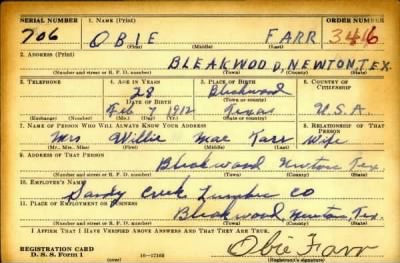 SERIAL NUMBER 1. NAME (Print) ORDER NUMBER
706 OBIE FARR 3416
(First) (Middle) (Last)
2. ADDRESS (Print)
BLEAKWOOD, NEWTON, TEX.
(Number and street or R. F. D. number) (Town) (County) (State)
3. TELEPHONE 4. AGE IN YEARS 5. PLACE OF BIRTH 6. COUNTRY OF CITIZENSHIP
28 Bleakwood
DATE OF BIRTH (Town or county)
Feb 7 1912 Texas U.S.A.
(Exchange) (Number) (Mo.) (Day) (Yr.) (State or country)
7. NAME OF PERSON WHO WILL ALWAYS KNOW YOUR ADDRESS 8. RELATIONSHIP OF THAT PERSON
Mrs Willie Mae Farr Wife
(Mr., Mrs., Miss) (First) (Middle) (Last)
9. ADDRESS OF THAT PERSON
Bleakwood Newton Tex.
(Number and street or R. F. D. number) (Town) (County) (State)
10. EMPLOYER'S NAME
Sandy Creek Lumber CO
11. PLACE OF EMPLOYMENT OR BUSINESS
Bleakwood Newton, Tex.
(Number and street or R. F. D. number) (Town) (County) (State)
I AFFIRM THAT I HAVE VERIFIED ABOVE ANSWERS AND THAT THEY ARE TRUE.
Obie Farr
REGISTRATION CARD
D. S. S. Form 1 (over) 16—17105 (Registrant's signature)